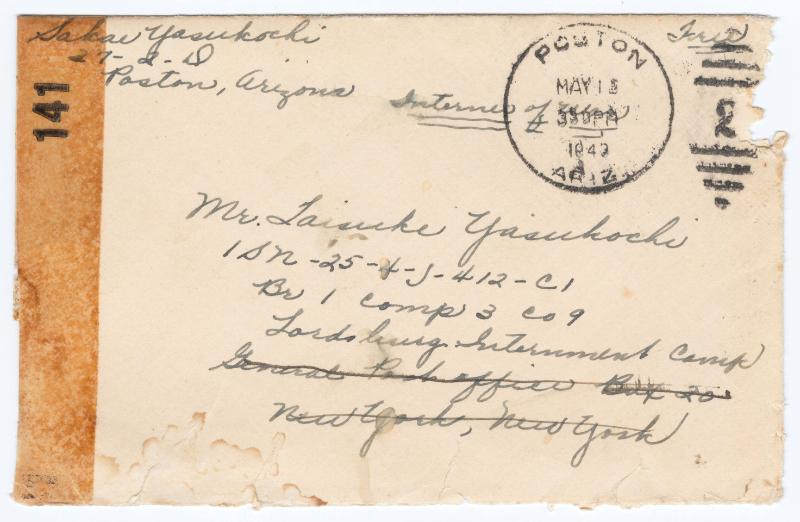 Sakae Yasukochi
27-2-D
Poston, Arizona
141
Internee of War
Free
POSTON
MAY 13
330PM
1943
ARIZ.
Mr. Taisuke Yasukochi
ISN-25-4-J-412-C1
Br 1 Comp 3 Co 9
Lordsburg Internment Camp
General Post Office Box 20
New York, New York